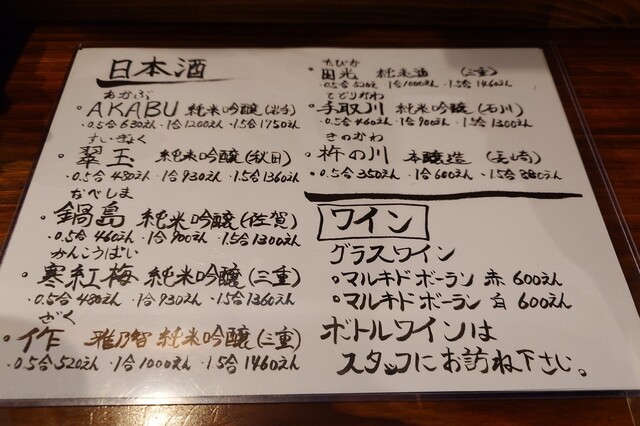 日本酒
あかぶ
・AKABU 純米吟醸(岩手)
・0.5合630えん ・1合1200えん ・1.5合1750えん
すいぎょく
・翠玉 純米吟醸(秋田)
・0.5合480えん ・1合930えん ・1.5合1360えん
なべしま
・鍋島 純米吟醸(佐賀)
・0.5合460えん ・1合900えん ・1.5合1300えん
かんこうばい
・寒紅梅 純米吟醸(三重)
・0.5合480えん ・1合930えん ・1.5合1360えん
ざく
・作 雅乃智 純米吟醸(三重)
・0.5合520えん ・1合1000えん ・1.5合1460えん
たびか
・田光 純米酒 (三重)
・0.5合520えん ・1合1000えん ・1.5合1460えん
てどりがわ
・手取川 純米吟醸(石川)
・0.5合460えん ・1合900えん ・1.5合1300えん
きのかわ
・杵の川 本醸造(長崎)
・0.5合350えん ・1合600えん ・1.5合880えん
ワイン
グラスワイン
・マルキドボーラン 赤 600えん
・マルキドボーラン 白 600えん
ボトルワインは
スタッフにお訪ね下さい。